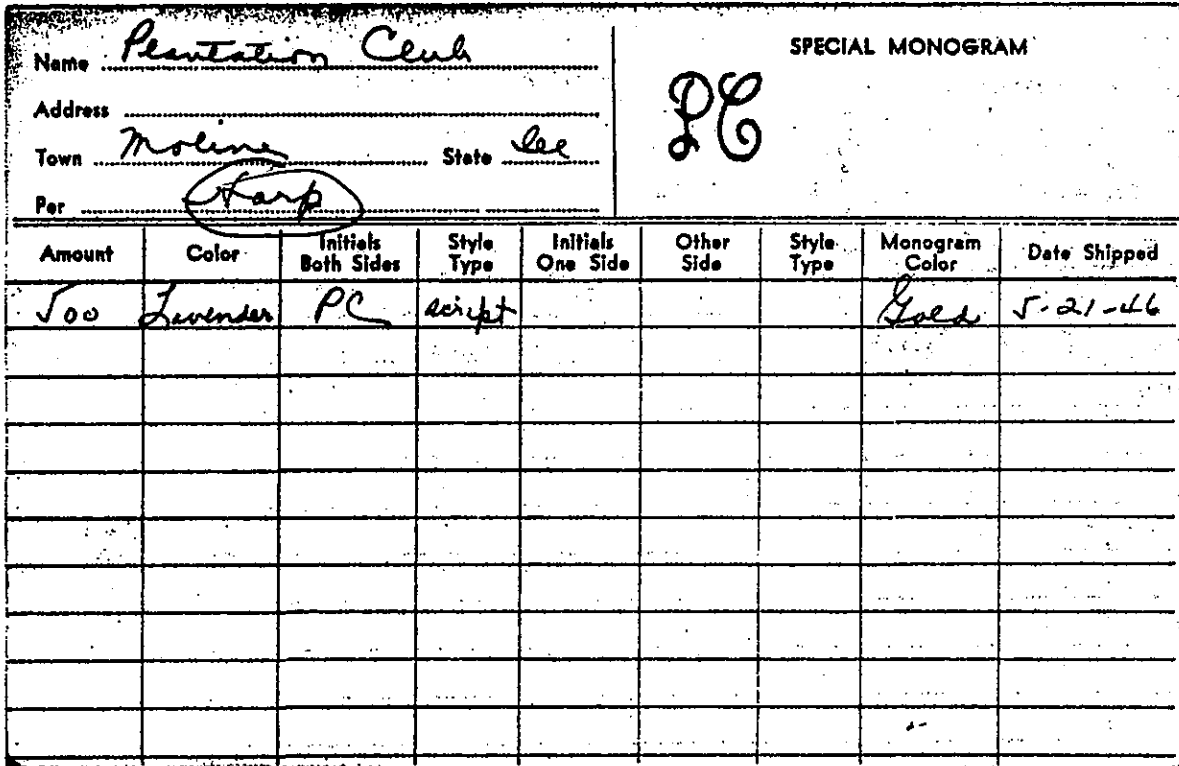 Name Plantation Club
SPECIAL MONOGRAM
PC
Address
Town Moline State Ill
Per Harp
Amount Color Initials Both Sides Style Type Initials One Side Other Side Style Type Monogram Color Date Shipped
500 Lavender PC script Gold 5-21-46